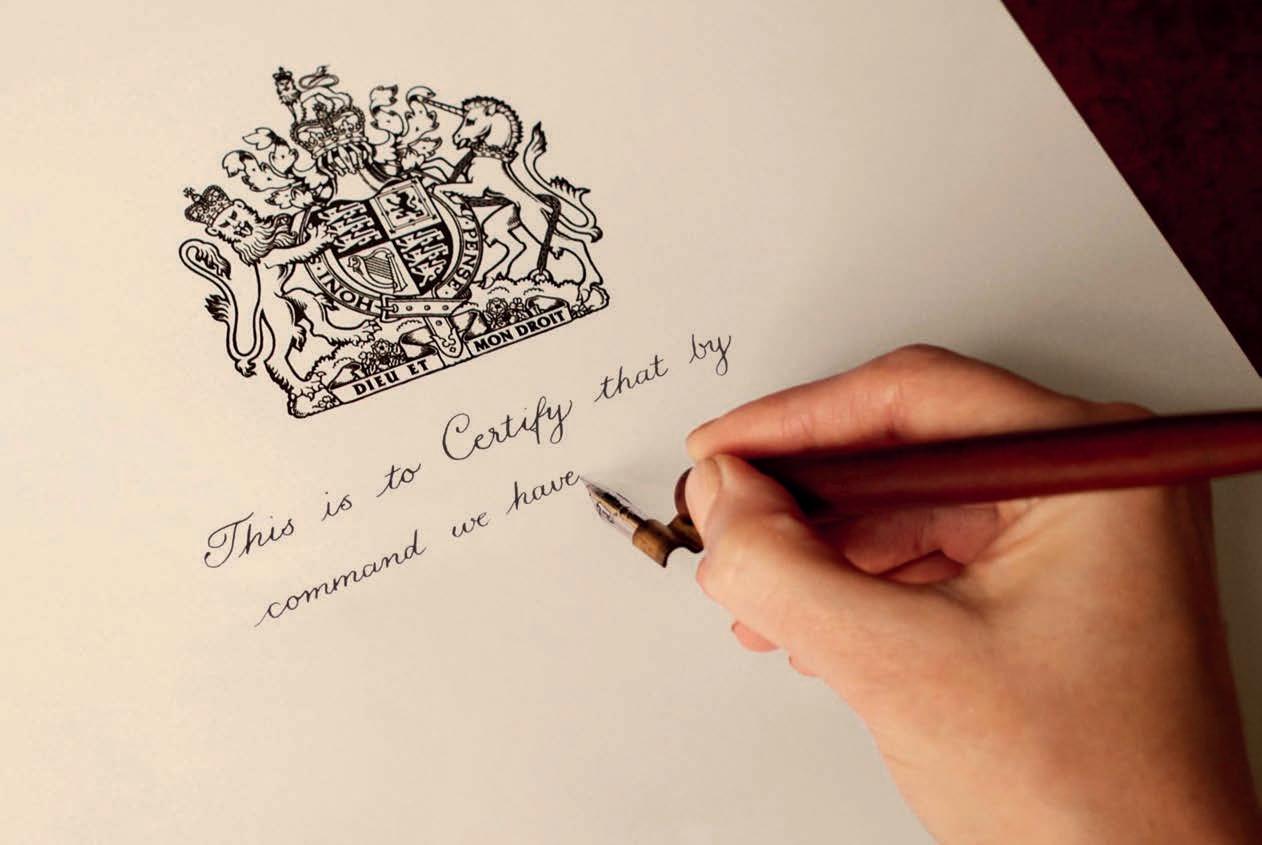 HONI · PENSE
DIEU ET MON DROIT
This is to Certify that by
command we have